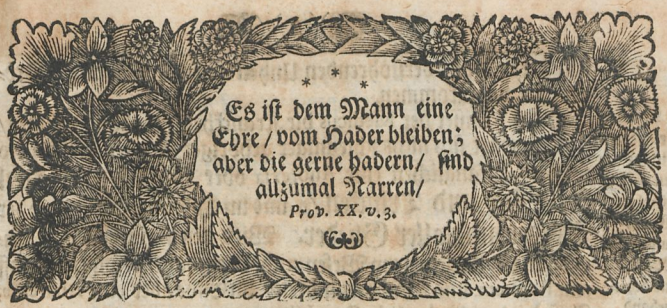 * * *
Es ist dem Mann eine
Ehre / vom Hader bleiben;
aber die gerne hadern / sind
allzumal Narren /
Prov. XX. v. 3.